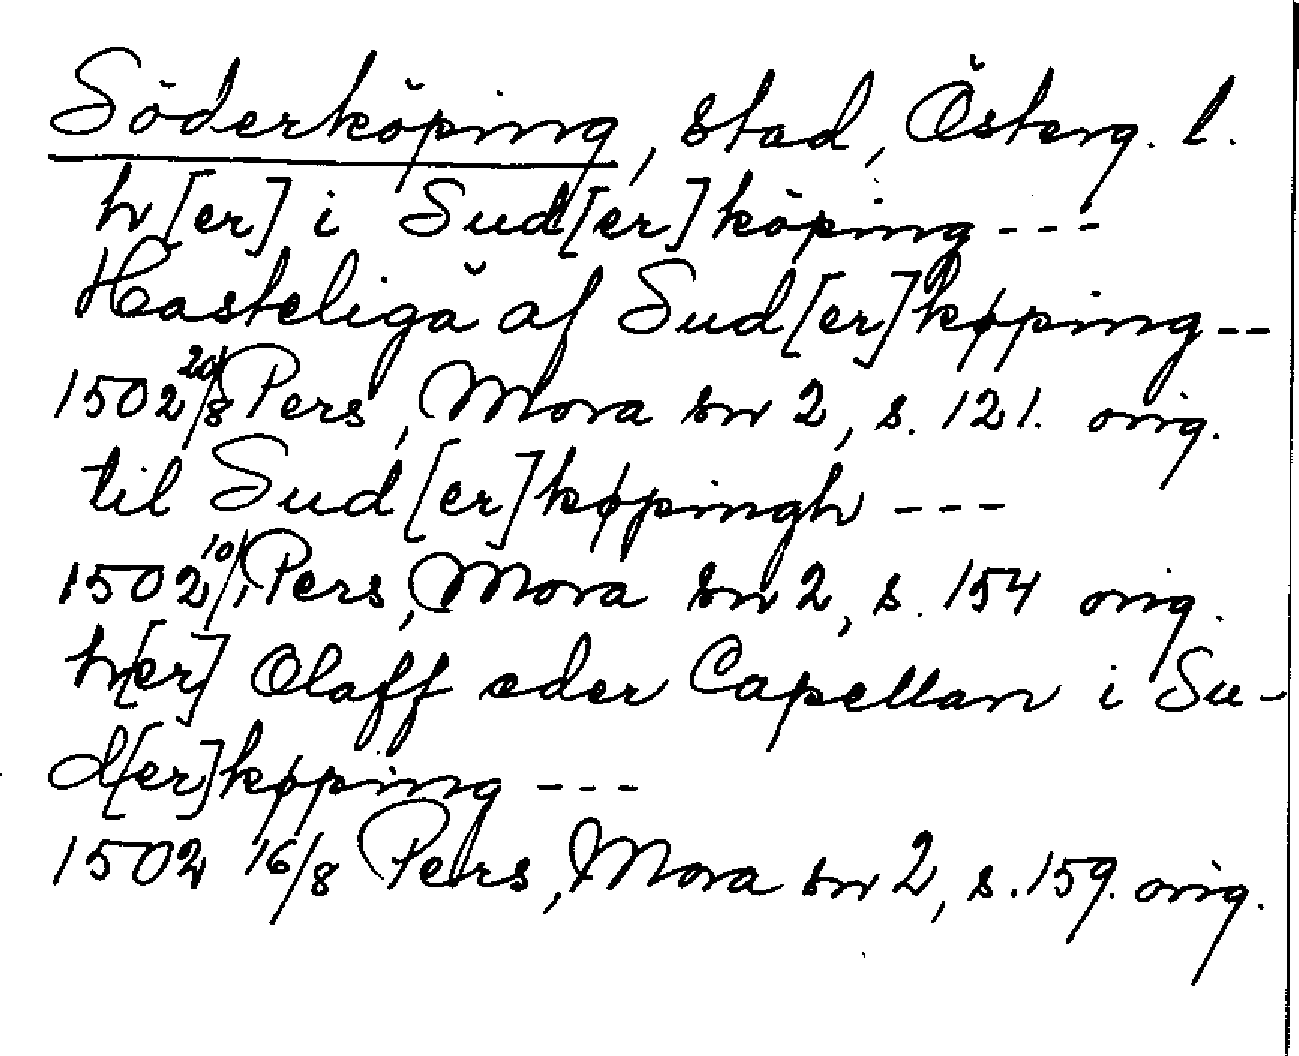 Söderköping, stad, Österg. l.
h[er] i Sud[er]köping ---
Hasteliga af Sud[er]køping --
1502 20/8 Pers, Mora sn 2, s. 121. orig.
til Sud[er]køpingh ---
1502 10/1 Pers, Mora sn 2, s. 154 orig.
h[er] Olaff eder Capellan i Su-
d[er]køping ---
1502 16/8 Pers, Mora sn 2, s. 159. orig.